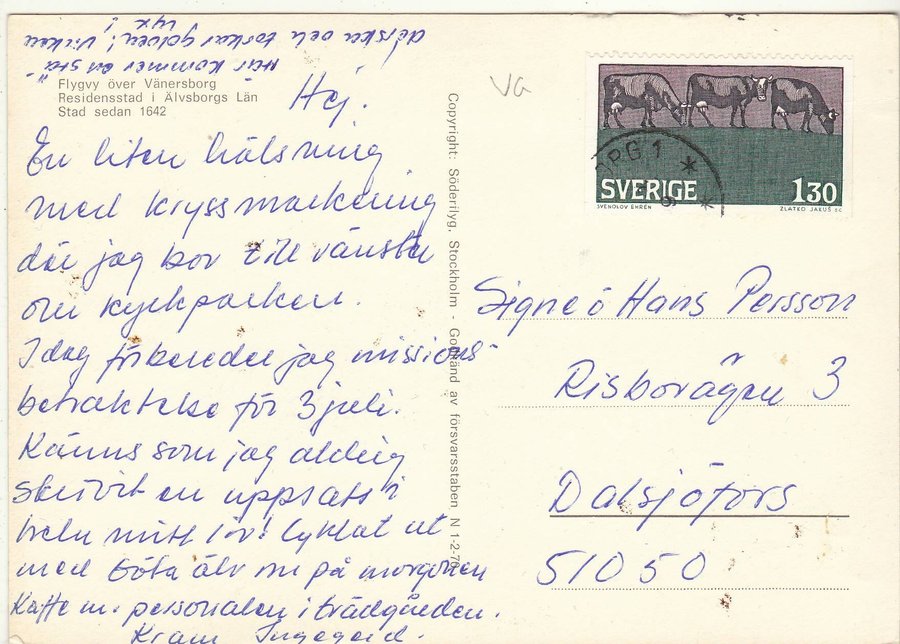 Flygvy över Vänersborg
Residensstad i Älvsborgs Län
Stad sedan 1642
Hej.
En liten hälsning
med kryssmarkering
där jag bor till vänster
om kyrkparken.
Idag förbereder jag missions-
betraktelse för 3 juli.
Känns som jag aldrig
skrivit en uppsats i
hela mitt liv! Cyklat ut
med Göta älv nu på morgonen
Kaffe m. personalen i trädgården.
Kram Ingegerd.
Här kommer en stä-
derska och torkar golven! Vilken
lyx!
Copyright: Söderilyg, Stockholm - Godkänd av försvarsstaben N 1-2-70
VG
SVERIGE 130
SVENOLOV EHRÉN ZLATKO JAKUŠ SC
RPG 1
Signe o Hans Persson
Risbovägen 3
Dalsjöfors
51050